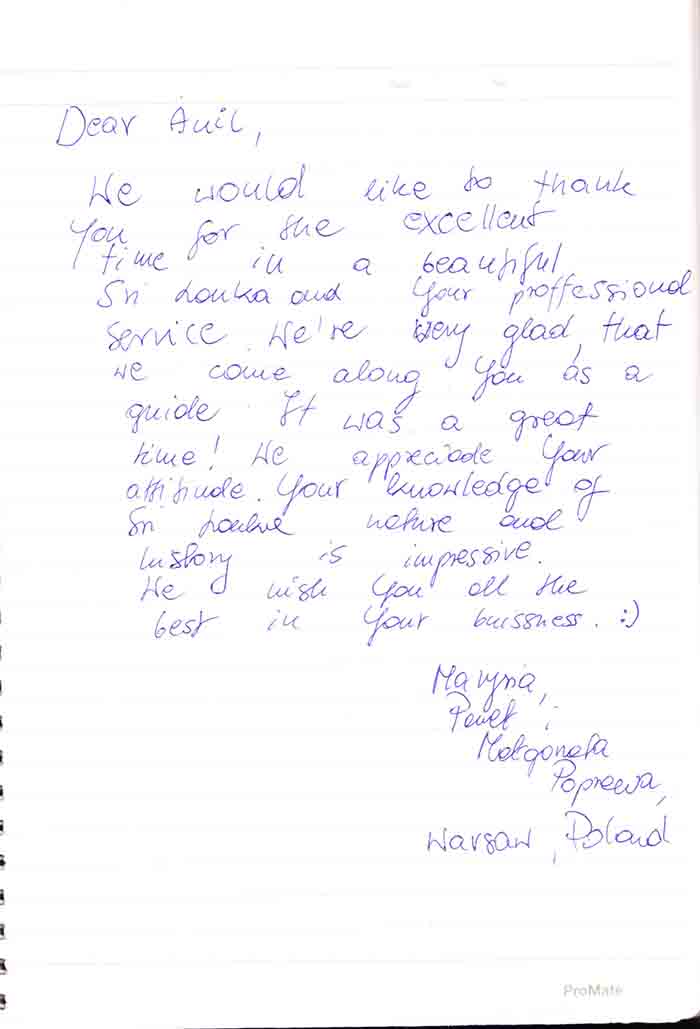 Dear Anil,
We would like to thank
You for the excellent
time in a beautiful
Sri Lanka and Your proffessional
service. We're very glad, that
we come along You as a
guide. It was a great
time! We appreciade Your
attitude. Your knowledge of
Sri Lanka nature and
history is impressive.
We wish You all the
best in Your buissness. :)
Marysia,
Paweł i
Małgorzata
Poprawa,
Warsaw, Poland
ProMate